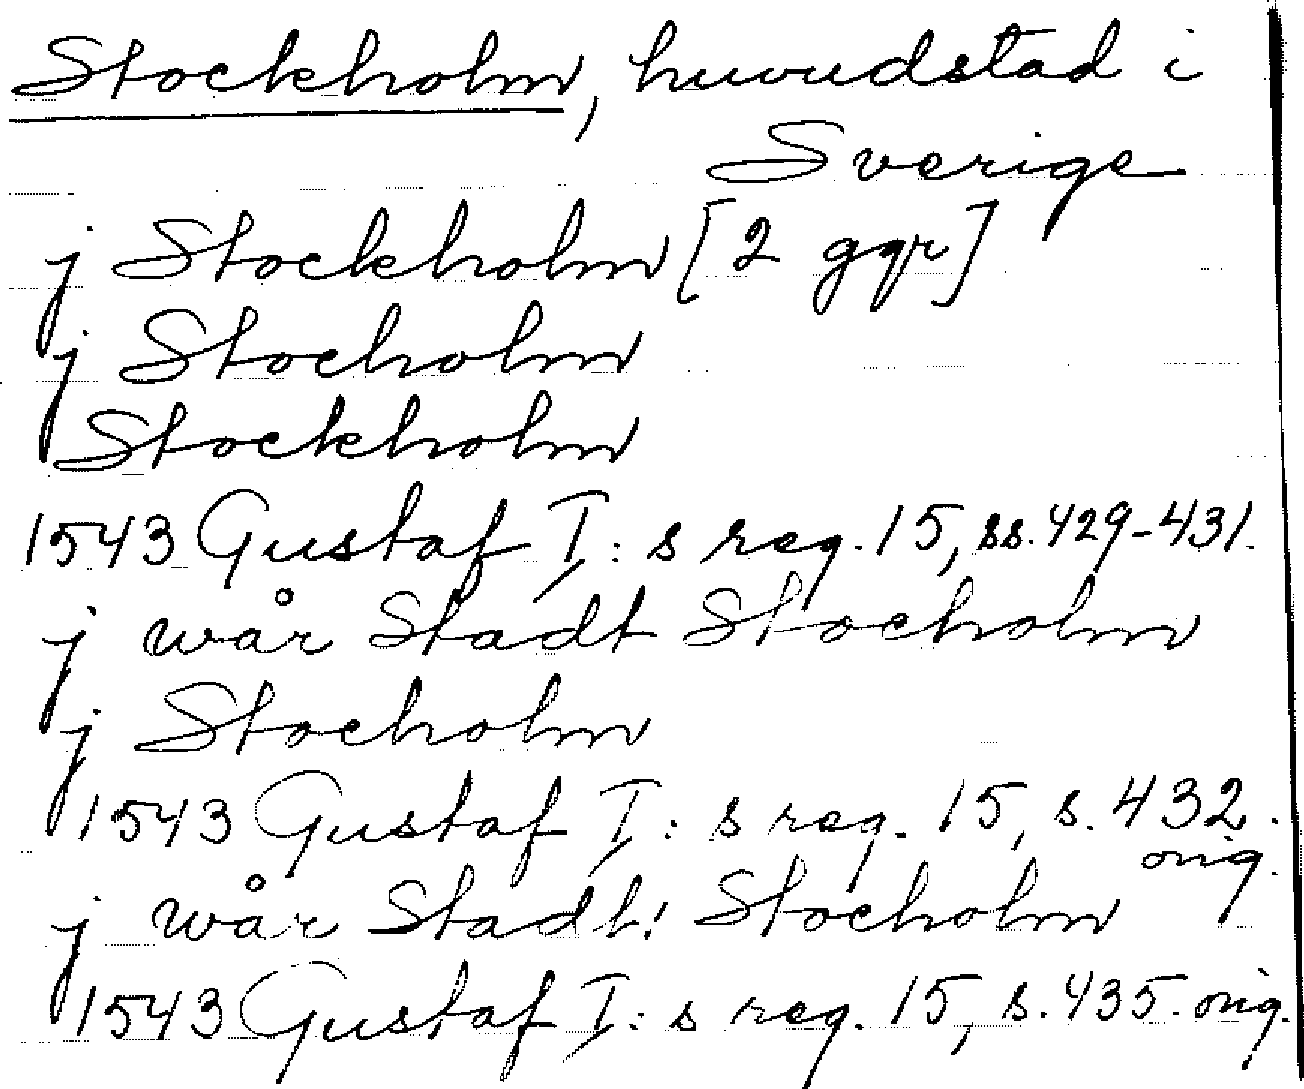 Stockholm, huvudstad i
Sverige
j Stockholm [2 ggr]
j Stocholm
Stockholm
1543 Gustaf I: s reg. 15, ss. 429-431.
j wår Stadt Stocholm
j Stocholm
1543 Gustaf I: s reg. 15, s. 432.
orig.
j wår Stadt! Stocholm
1543 Gustaf I: s reg. 15, s. 435. orig.